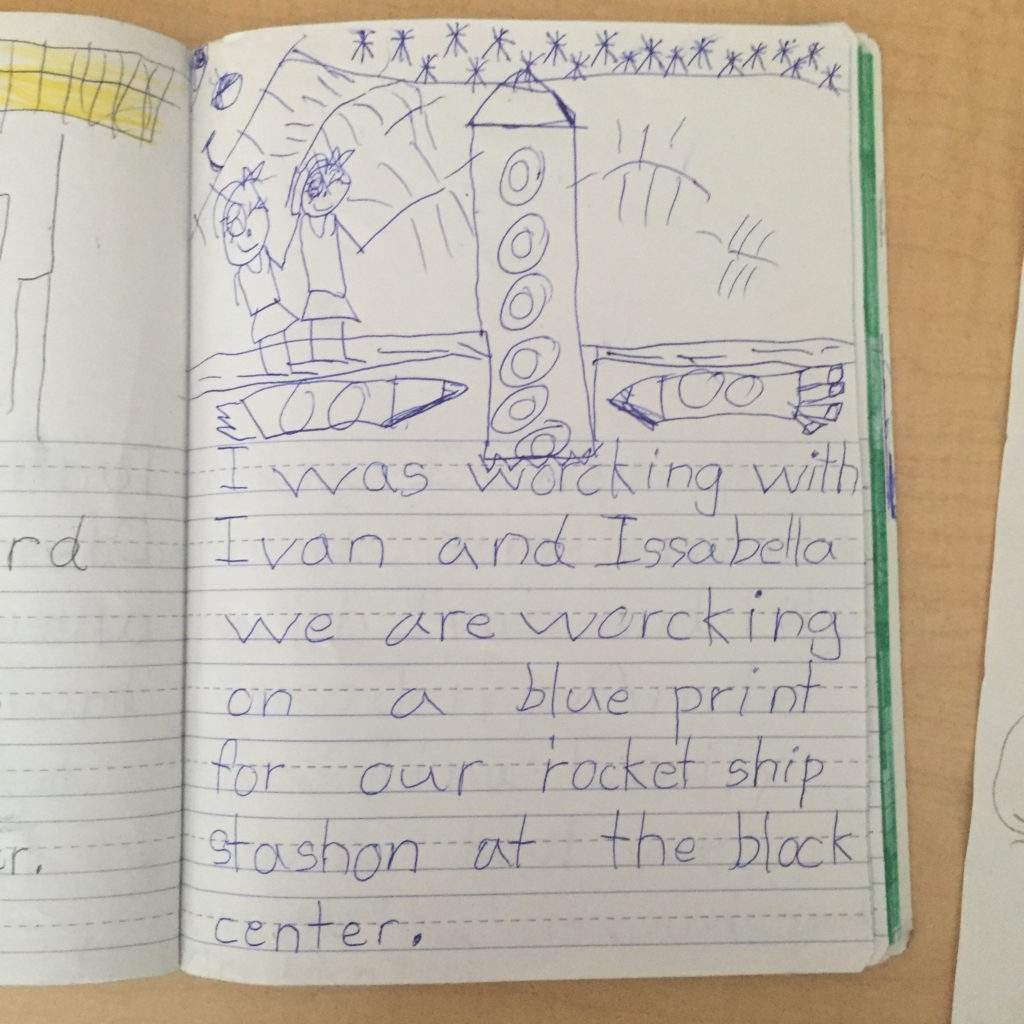 rd
er.
I was worcking with
Ivan and Issabella
we are worcking
on a blue print
for our rocket ship
stashon at the block
center.